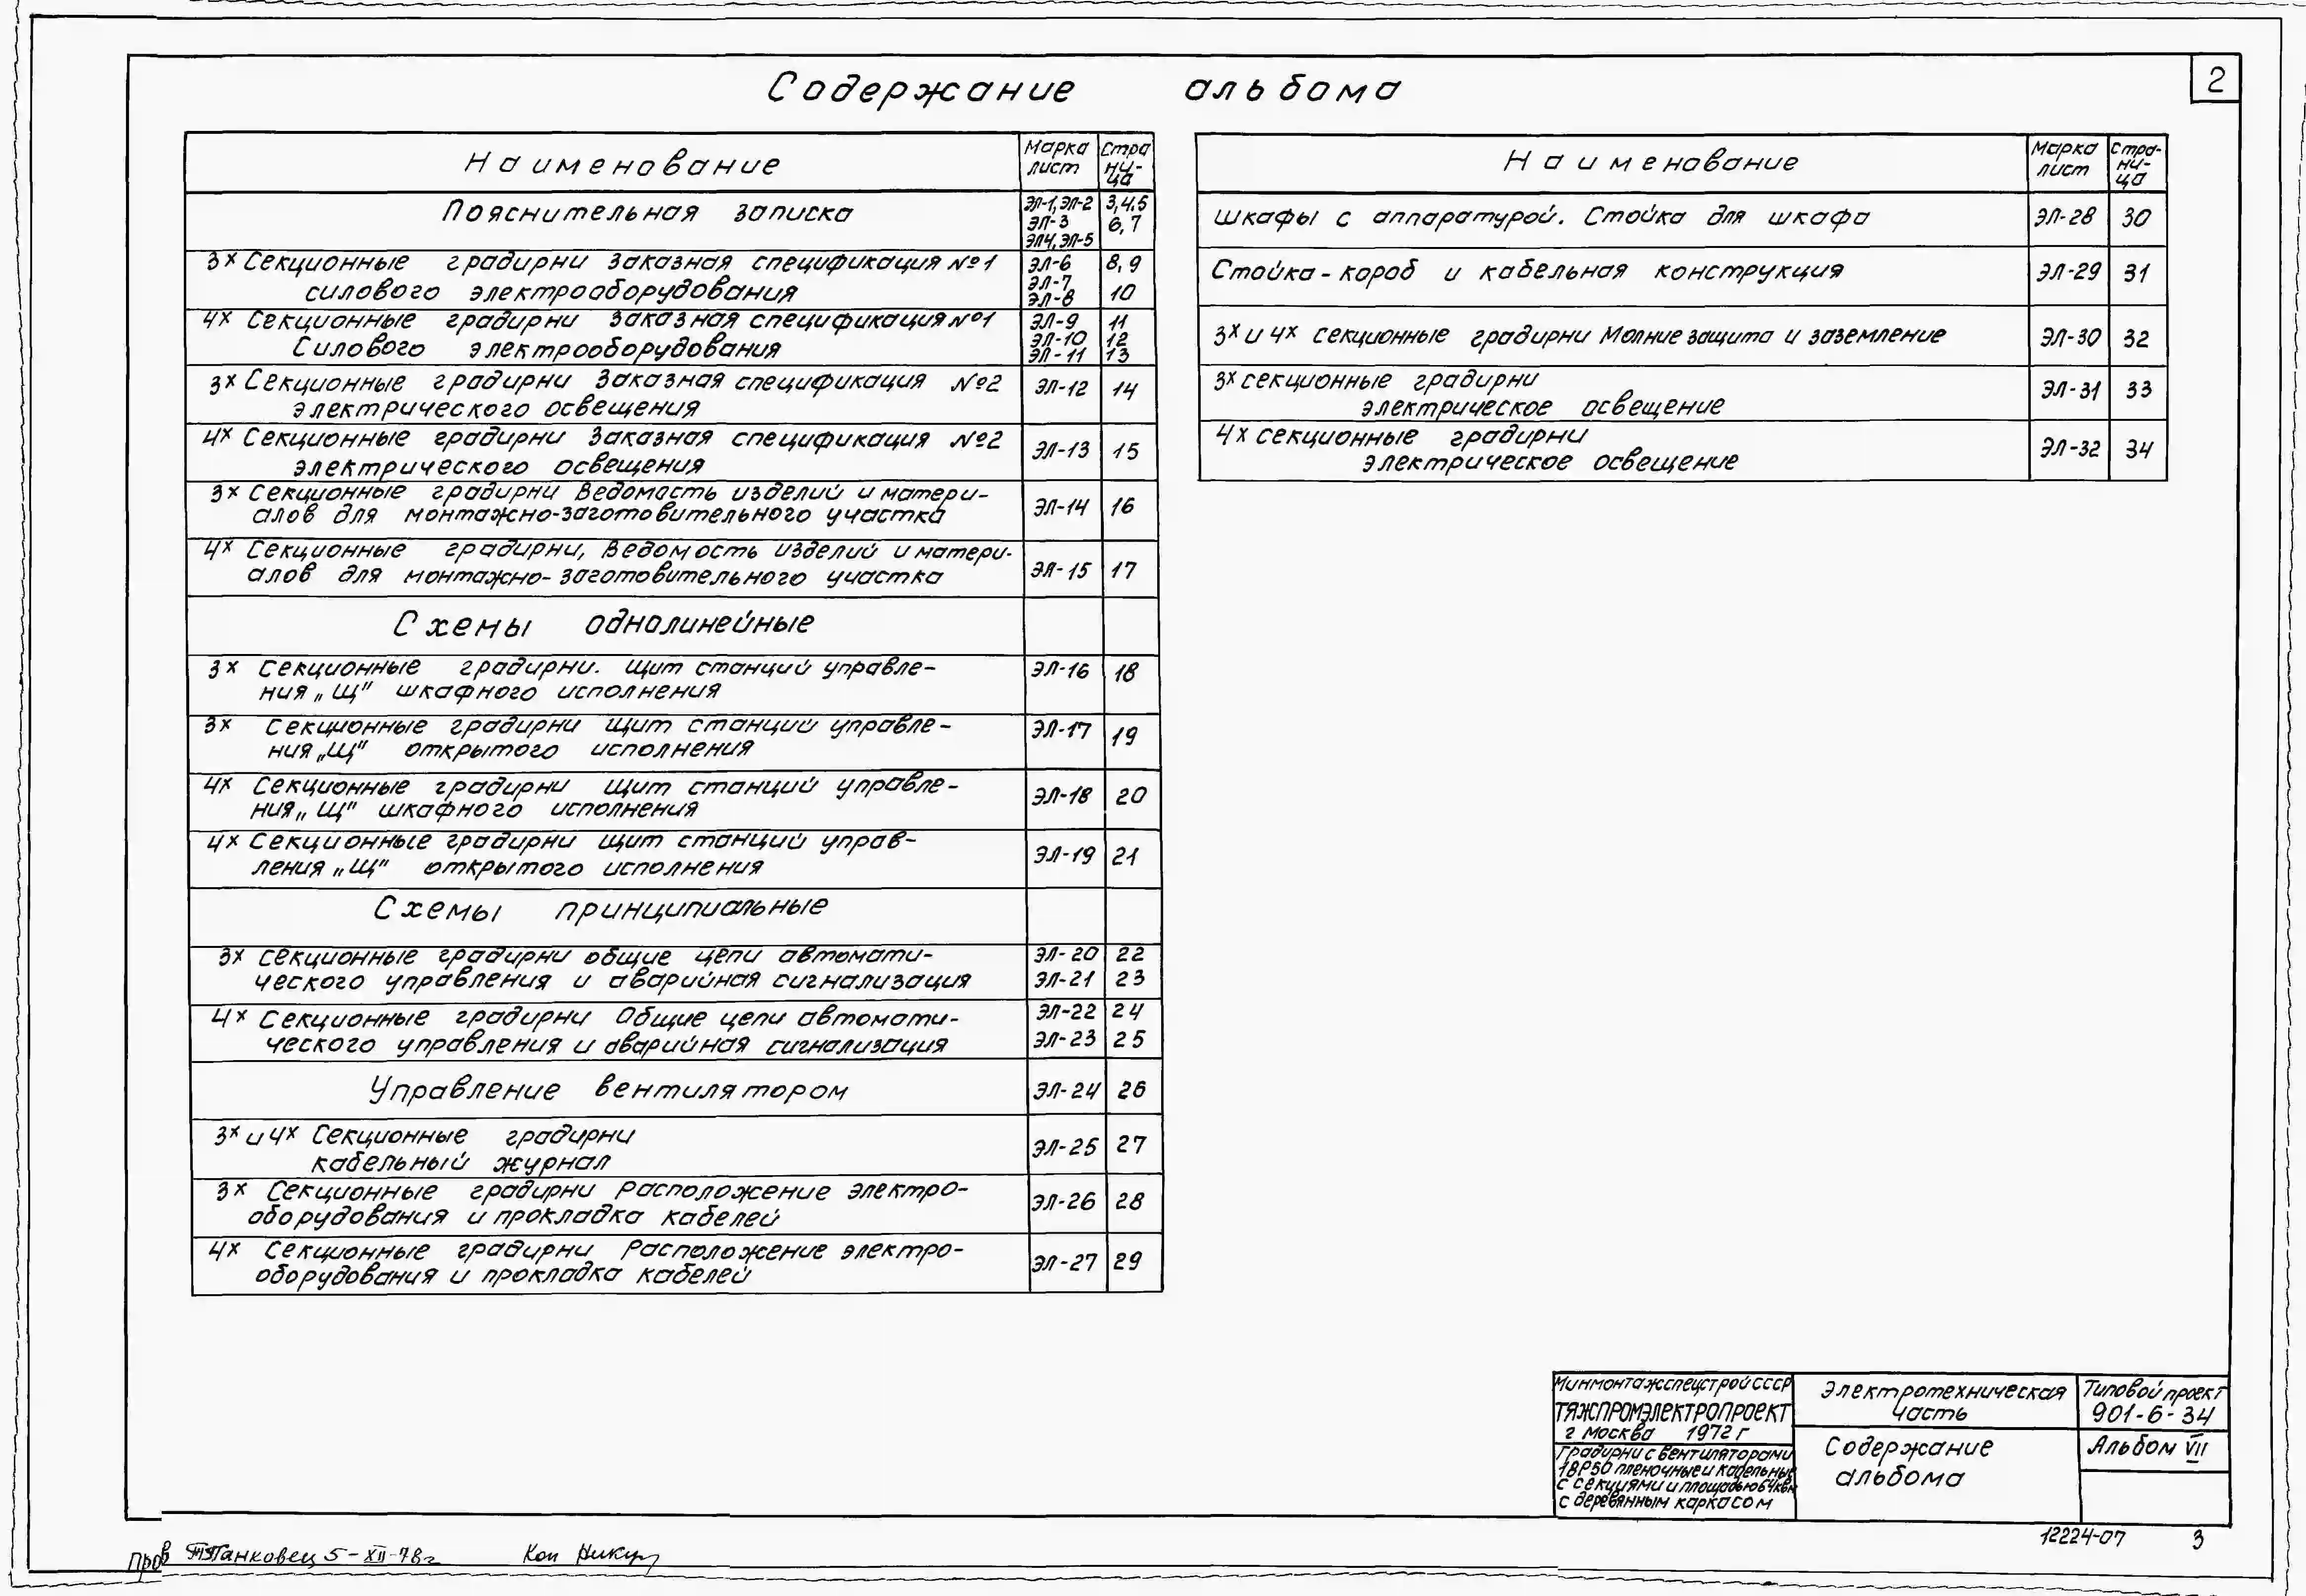 2
Содержание альбома
Наименование
Марка
лист
Стра
ни-
ца
Пояснительная записка
ЭЛ-1, ЭЛ-2 3,4,5
ЭЛ-3 6,7
ЭЛ4, ЭЛ-5
3х Секционные градирни Заказная спецификация №1
силового электрооборудования
ЭЛ-6 8,9
ЭЛ-7
ЭЛ-8 10
4х Секционные градирни Заказная спецификация №1
Силового электрооборудования
ЭЛ-9 11
ЭЛ-10 12
ЭЛ-11 13
3х Секционные градирни Заказная спецификация №2
электрического освещения
ЭЛ-12 14
4х Секционные градирни Заказная спецификация №2
электрического освещения
ЭЛ-13 15
3х Секционные градирни Ведомость изделий и матери-
алов для монтажно-заготовительного участка
ЭЛ-14 16
4х Секционные градирни, Ведомость изделий и матери-
алов для монтажно-заготовительного участка
ЭЛ-15 17
Схемы однолинейные
3х Секционные градирни. Щит станций управле-
ния „Щ" шкафного исполнения
ЭЛ-16 18
3х Секционные градирни Щит станций управле-
ния „Щ" открытого исполнения
ЭЛ-17 19
4х Секционные градирни Щит станций управле-
ния „Щ" шкафного исполнения
ЭЛ-18 20
4х Секционные градирни щит станций управ-
ления „Щ" открытого исполнения
ЭЛ-19 21
Схемы принципиальные
3х секционные градирни общие цепи автомати-
ческого управления и аварийная сигнализация
ЭЛ-20 22
ЭЛ-21 23
4х Секционные градирни Общие цепи автомати-
ческого управления и аварийная сигнализация
ЭЛ-22 24
ЭЛ-23 25
Управление вентилятором
ЭЛ-24 26
3х и 4х Секционные градирни
кабельный журнал
ЭЛ-25 27
3х Секционные градирни Расположение электро-
оборудования и прокладка кабелей
ЭЛ-26 28
4х Секционные градирни Расположение электро-
оборудования и прокладка кабелей
ЭЛ-27 29
Наименование
Марка
лист
Стра-
ни-
ца
шкафы с аппаратурой. Стойка для шкафа
ЭЛ-28 30
Стойка-короб и кабельная конструкция
ЭЛ-29 31
3х и 4х секционные градирни Молниезащита и заземление
ЭЛ-30 32
3х секционные градирни
электрическое освещение
ЭЛ-31 33
4х секционные градирни
электрическое освещение
ЭЛ-32 34
Минмонтажспецстрой СССР
ТЯЖПРОМЭЛЕКТРОПРОЕКТ
г Москва 1972 г
Градирни с вентиляторами
1ВГ50 пленочные и капельные
с секциями и площадью 64 кв м
с деревянным каркасом
Электротехническая
часть
Содержание
альбома
Типовой проект
901-6-34
Альбом VII
12224-07 3
Пров Танковец 5-XII-78г Коп